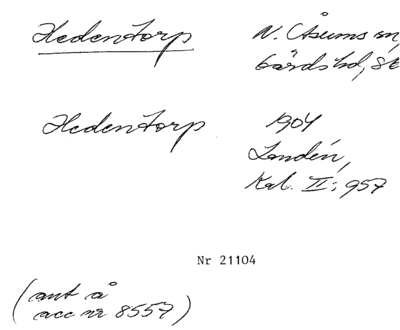 Hedentorp N. Åsums sn,
Gärds hd, Sk
Hedentorp 1904
Landén,
Kat. II: 957
Nr 21104
(ant å
acc nr 8557)